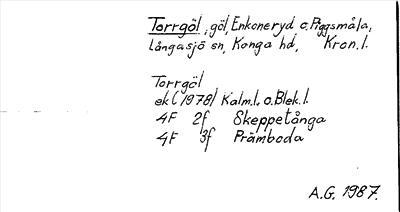 Torrgöl, göl, Enkoneryd o. Piggsmåla,
Långasjö sn, Konga hd, Kron.l.
Torrgöl
ek (1978) Kalm.l. o. Blek.l.
4F 2f Skeppetånga
4F 3f Pråmboda
A.G. 1987.